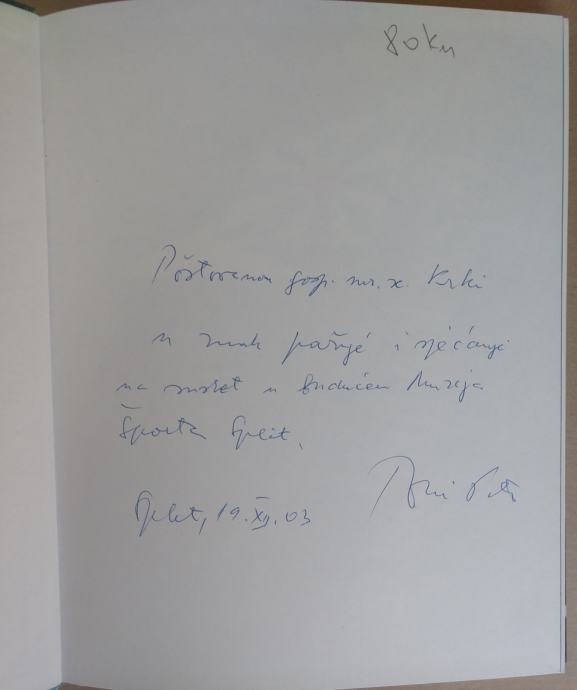 80 kn
Poštovanom gosp. mr. sc. Krki
u znak pažnje i sjećanja
na susret u budućem Muzeju
Športa Split.
Split, 19. XII. 03